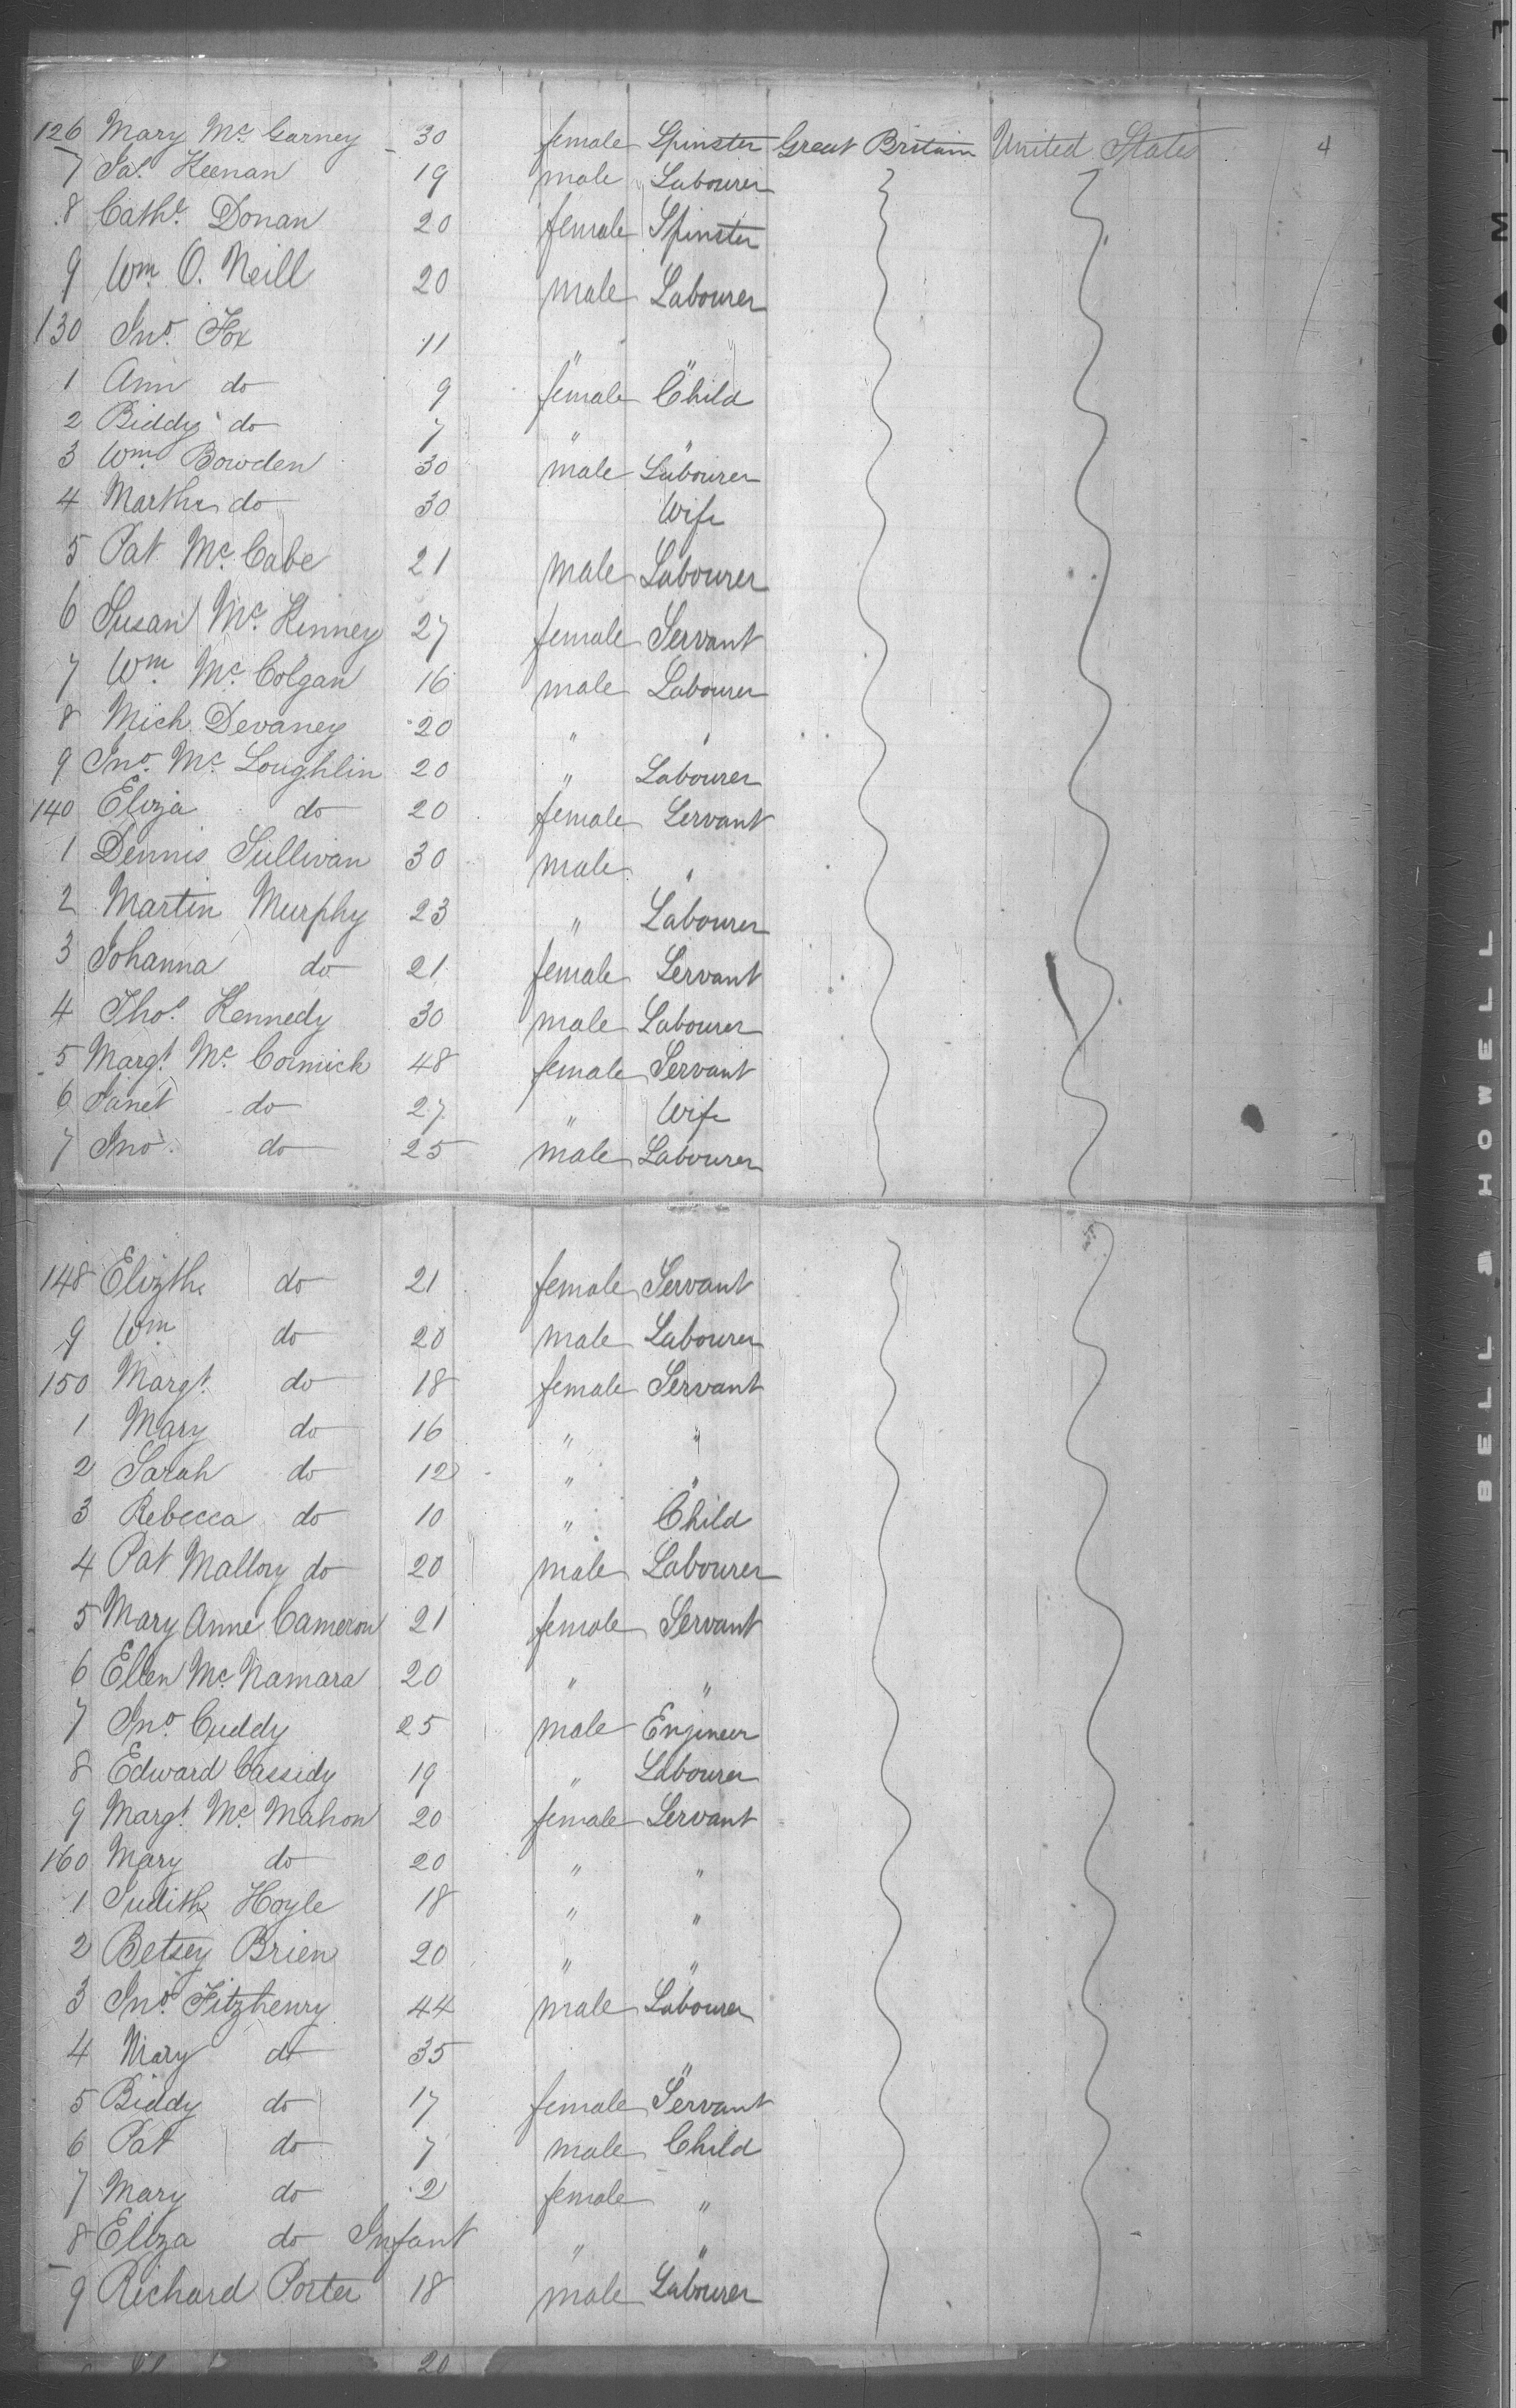 126 Mary Mc. Garney 30 female Spinster Great Britain United States 4
7 Jas. Keenan 19 male Labourer
8 Cathe. Donan 20 female Spinster
9 Wm. O. Neill 20 male Labourer
130 Jno. Fox 11 " "
1 Ann do 9 female Child
2 Biddy do 7 " "
3 Wm. Bowden 30 male Labourer
4 Martha do 30 Wife
5 Pat Mc. Cabe 21 male Labourer
6 Susan Mc. Kinney 27 female Servant
7 Wm. Mc. Colgan 16 male Labourer
8 Mich Devaney 20 " "
9 Jno. Mc. Loughlin 20 " Labourer
140 Eliza do 20 female Servant
1 Dennis Sullivan 30 male "
2 Martin Murphy 23 " Labourer
3 Johanna do 21 female Servant
4 Thos. Kennedy 30 male Labourer
5 Margt. Mc. Cormick 48 female Servant
6 Janet do 27 " Wife
7 Jno. do 25 male Labourer
148 Elizth do 21 female Servant
9 Wm. do 20 male Labourer
150 Margt. do 18 female Servant
1 Mary do 16 " "
2 Sarah do 12 " "
3 Rebecca do 10 " Child
4 Pat Mallory do 20 male Labourer
5 Mary Anne Cameron 21 female Servant
6 Ellen Mc. Namara 20 " "
7 Jno. Cuddy 25 male Engineer
8 Edward Cassidy 19 " Labourer
9 Margt. Mc. Mahon 20 female Servant
160 Mary do 20 " "
1 Judith Hoyle 18 " "
2 Betsey Brien 20 " "
3 Jno. Fitzhenry 44 male Labourer
4 Mary do 35 "
5 Biddy do 17 female Servant
6 Pat do 7 male Child
7 Mary do 2 female "
8 Eliza do Infant " "
9 Richard Porter 18 male Labourer
20
BELL & HOWELL